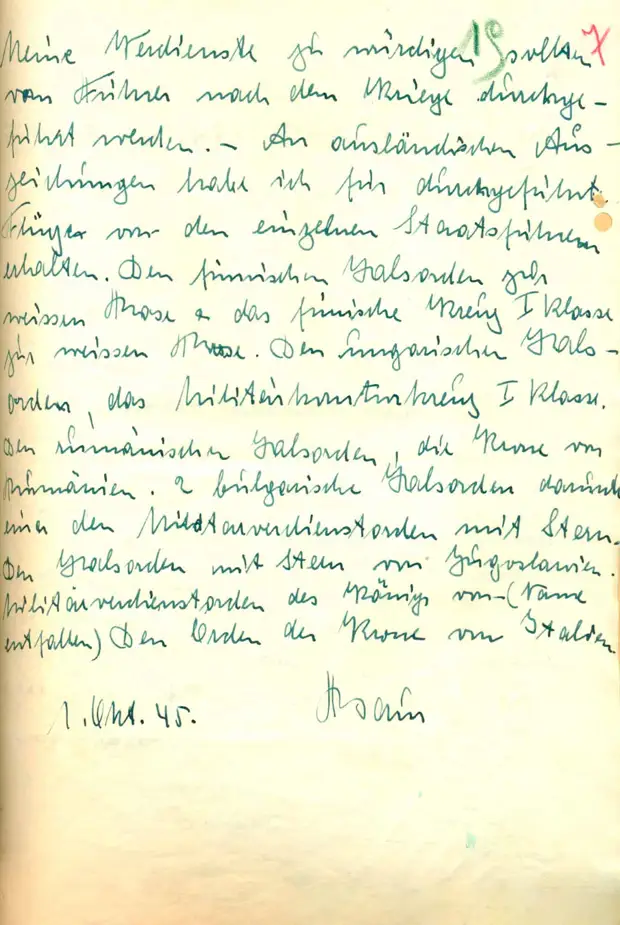 Meine Verdienste zu würdigen sollten
vom Führer nach dem Kriege durchge-
führt werden. – An ausländischen Aus-
zeichnungen habe ich für durchgeführte
Flüge von den einzelnen Staatsführern
erhalten. Den finnischen Halsorden zur
weissen Rose u das finnische Kreuz I Klasse
zur weissen Rose. Den ungarischen Hals-
orden, das Militärkomturkreuz I Klasse.
Den rumänischen Halsorden, die Krone von
Rumänien. 2 bulgarische Halsorden darunter
einer den Militärverdienstorden mit Stern.
Den Halsorden mit Stern von Jugoslawien.
Militärverdienstorden des Königs von (Name
entfallen) Den Orden der Krone von Italien
1. Okt. 45. Baur
19 7